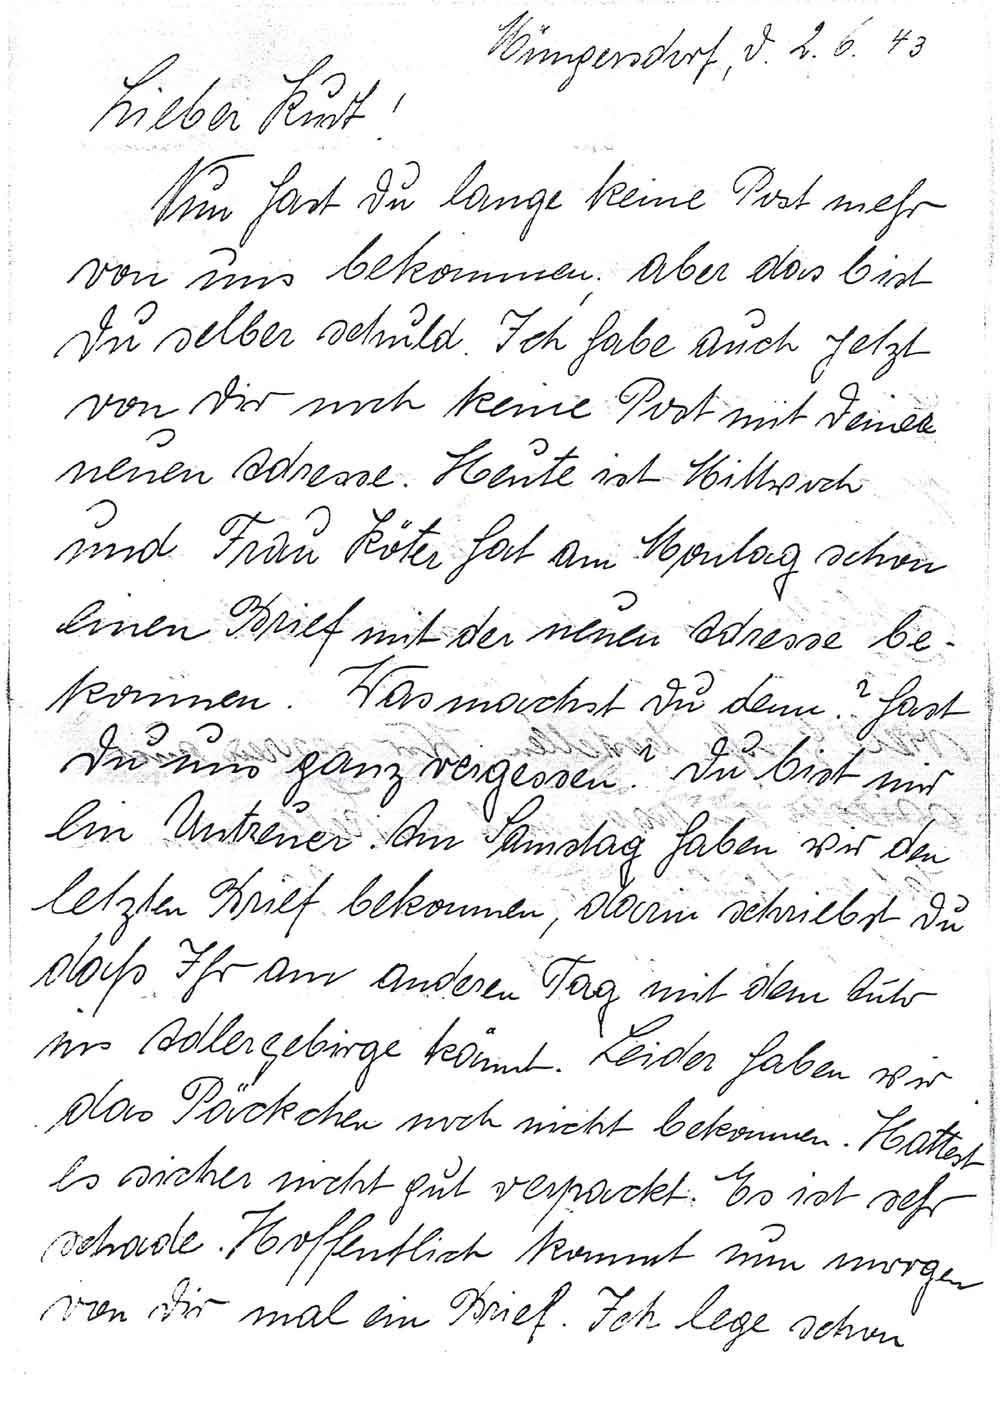 Müngersdorf, d. 2. 6. 43
Lieber Kurt!
Nun hast Du lange keine Post mehr
von uns bekommen, aber das bist
Du selber schuld. Ich habe auch jetzt
von Dir noch keine Post mit Deiner
neuen Adresse. Heute ist Mittwoch
und Frau Köter hat am Montag schon
einen Brief mit der neuen Adresse be-
kommen. Was machst Du denn? Hast
Du uns ganz vergessen? Du bist mir
ein Untreuer. Am Samstag haben wir den
letzten Brief bekommen, darin schriebst Du
daß Ihr am anderen Tag mit dem Auto
ins Adlergebirge kämt. Leider haben wir
das Päckchen noch nicht bekommen. Hattest
es sicher nicht gut verpackt. Es ist sehr
schade. Hoffentlich kommt nun morgen
von Dir mal ein Brief. Ich lege schon